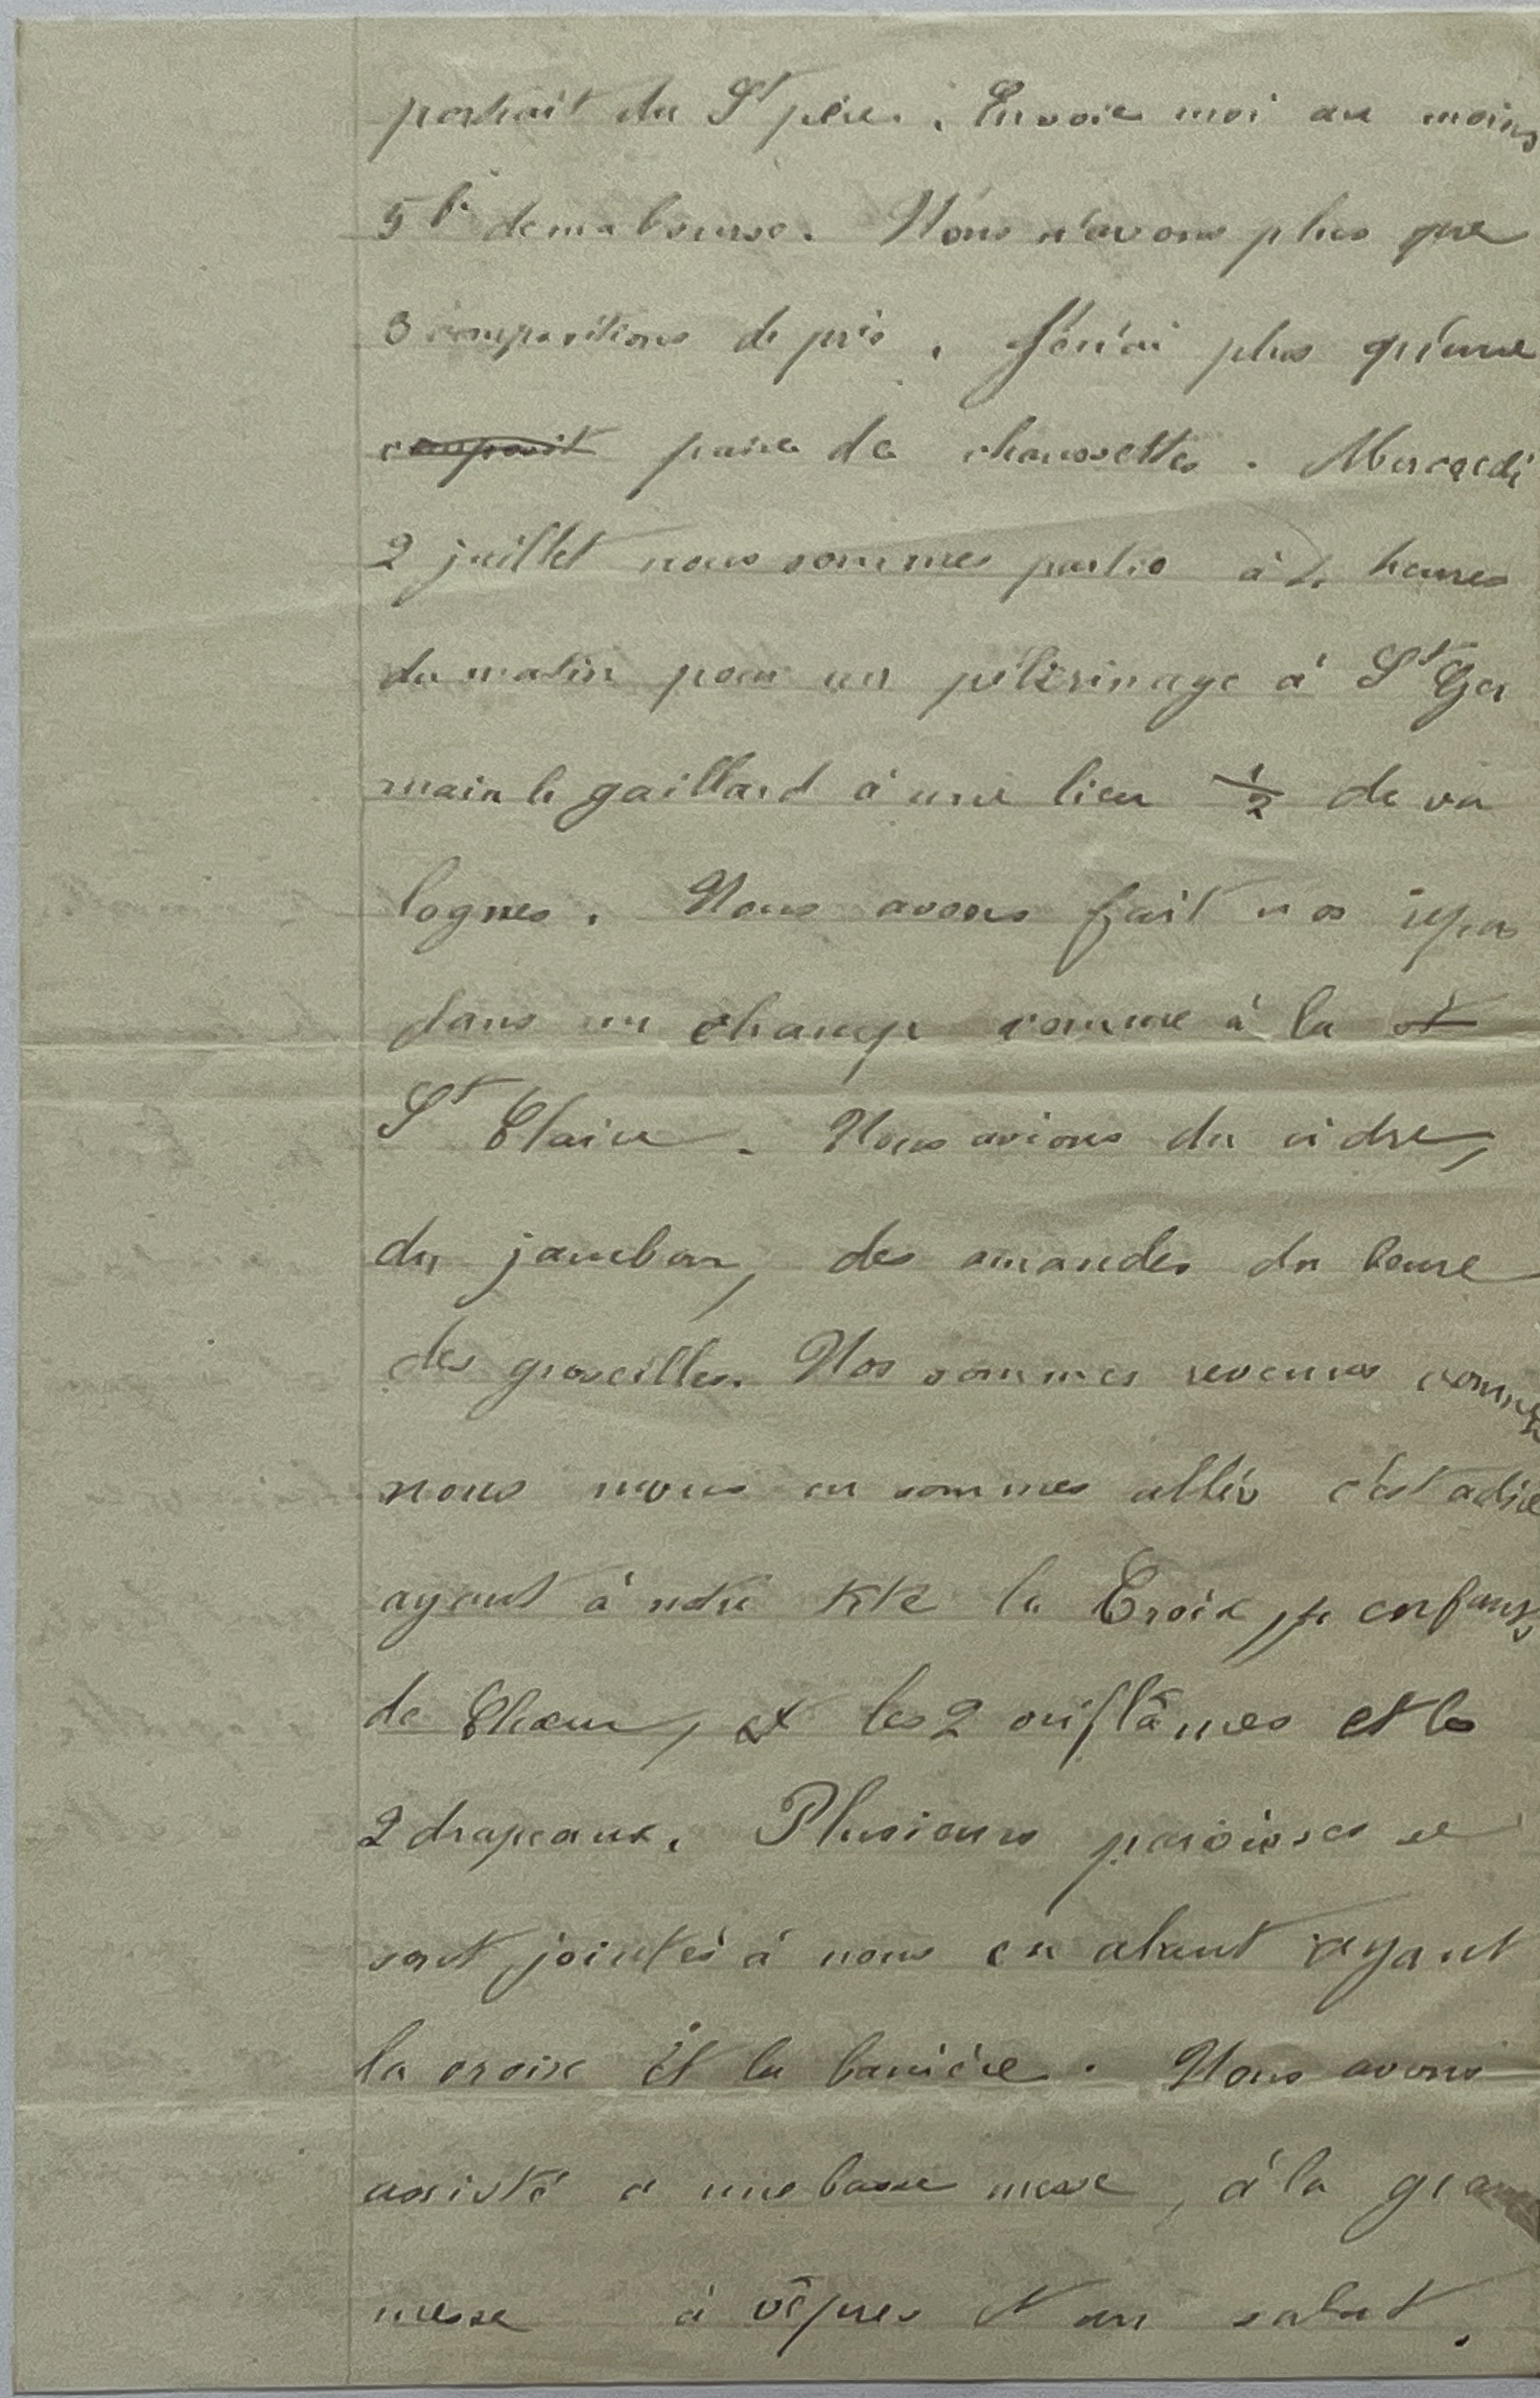 portrait du St père. Envoie moi au moins
5 f de ma bourse. Nous n'avons plus que
3 compositions de prix. Je n'ai plus qu'une
composit paire de chaussettes. Mercredi
2 juillet nous sommes partis à heures
du matin pour un pélerinage à St Ger
main le gaillard à une lieu 1/2 de va
lognes. Nous avons fait nos repas
dans un champ comme à la st
St Claire. Nous avions du cidre,
du jambon, des amandes du beure
des groseilles. Nos sommes revenus comme
nous nous en sommes allés c'est adire
ayant à notre tête la Croix, enfants
de Chœur, et les 2 oriflâmes et les
2 drapeaux. Plusieurs paroisses se
sont jointés à nous en alant ayant
la croix et la banière. Nous avons
assisté a une basse messe, à la gran
messe à vêpres et au salut.